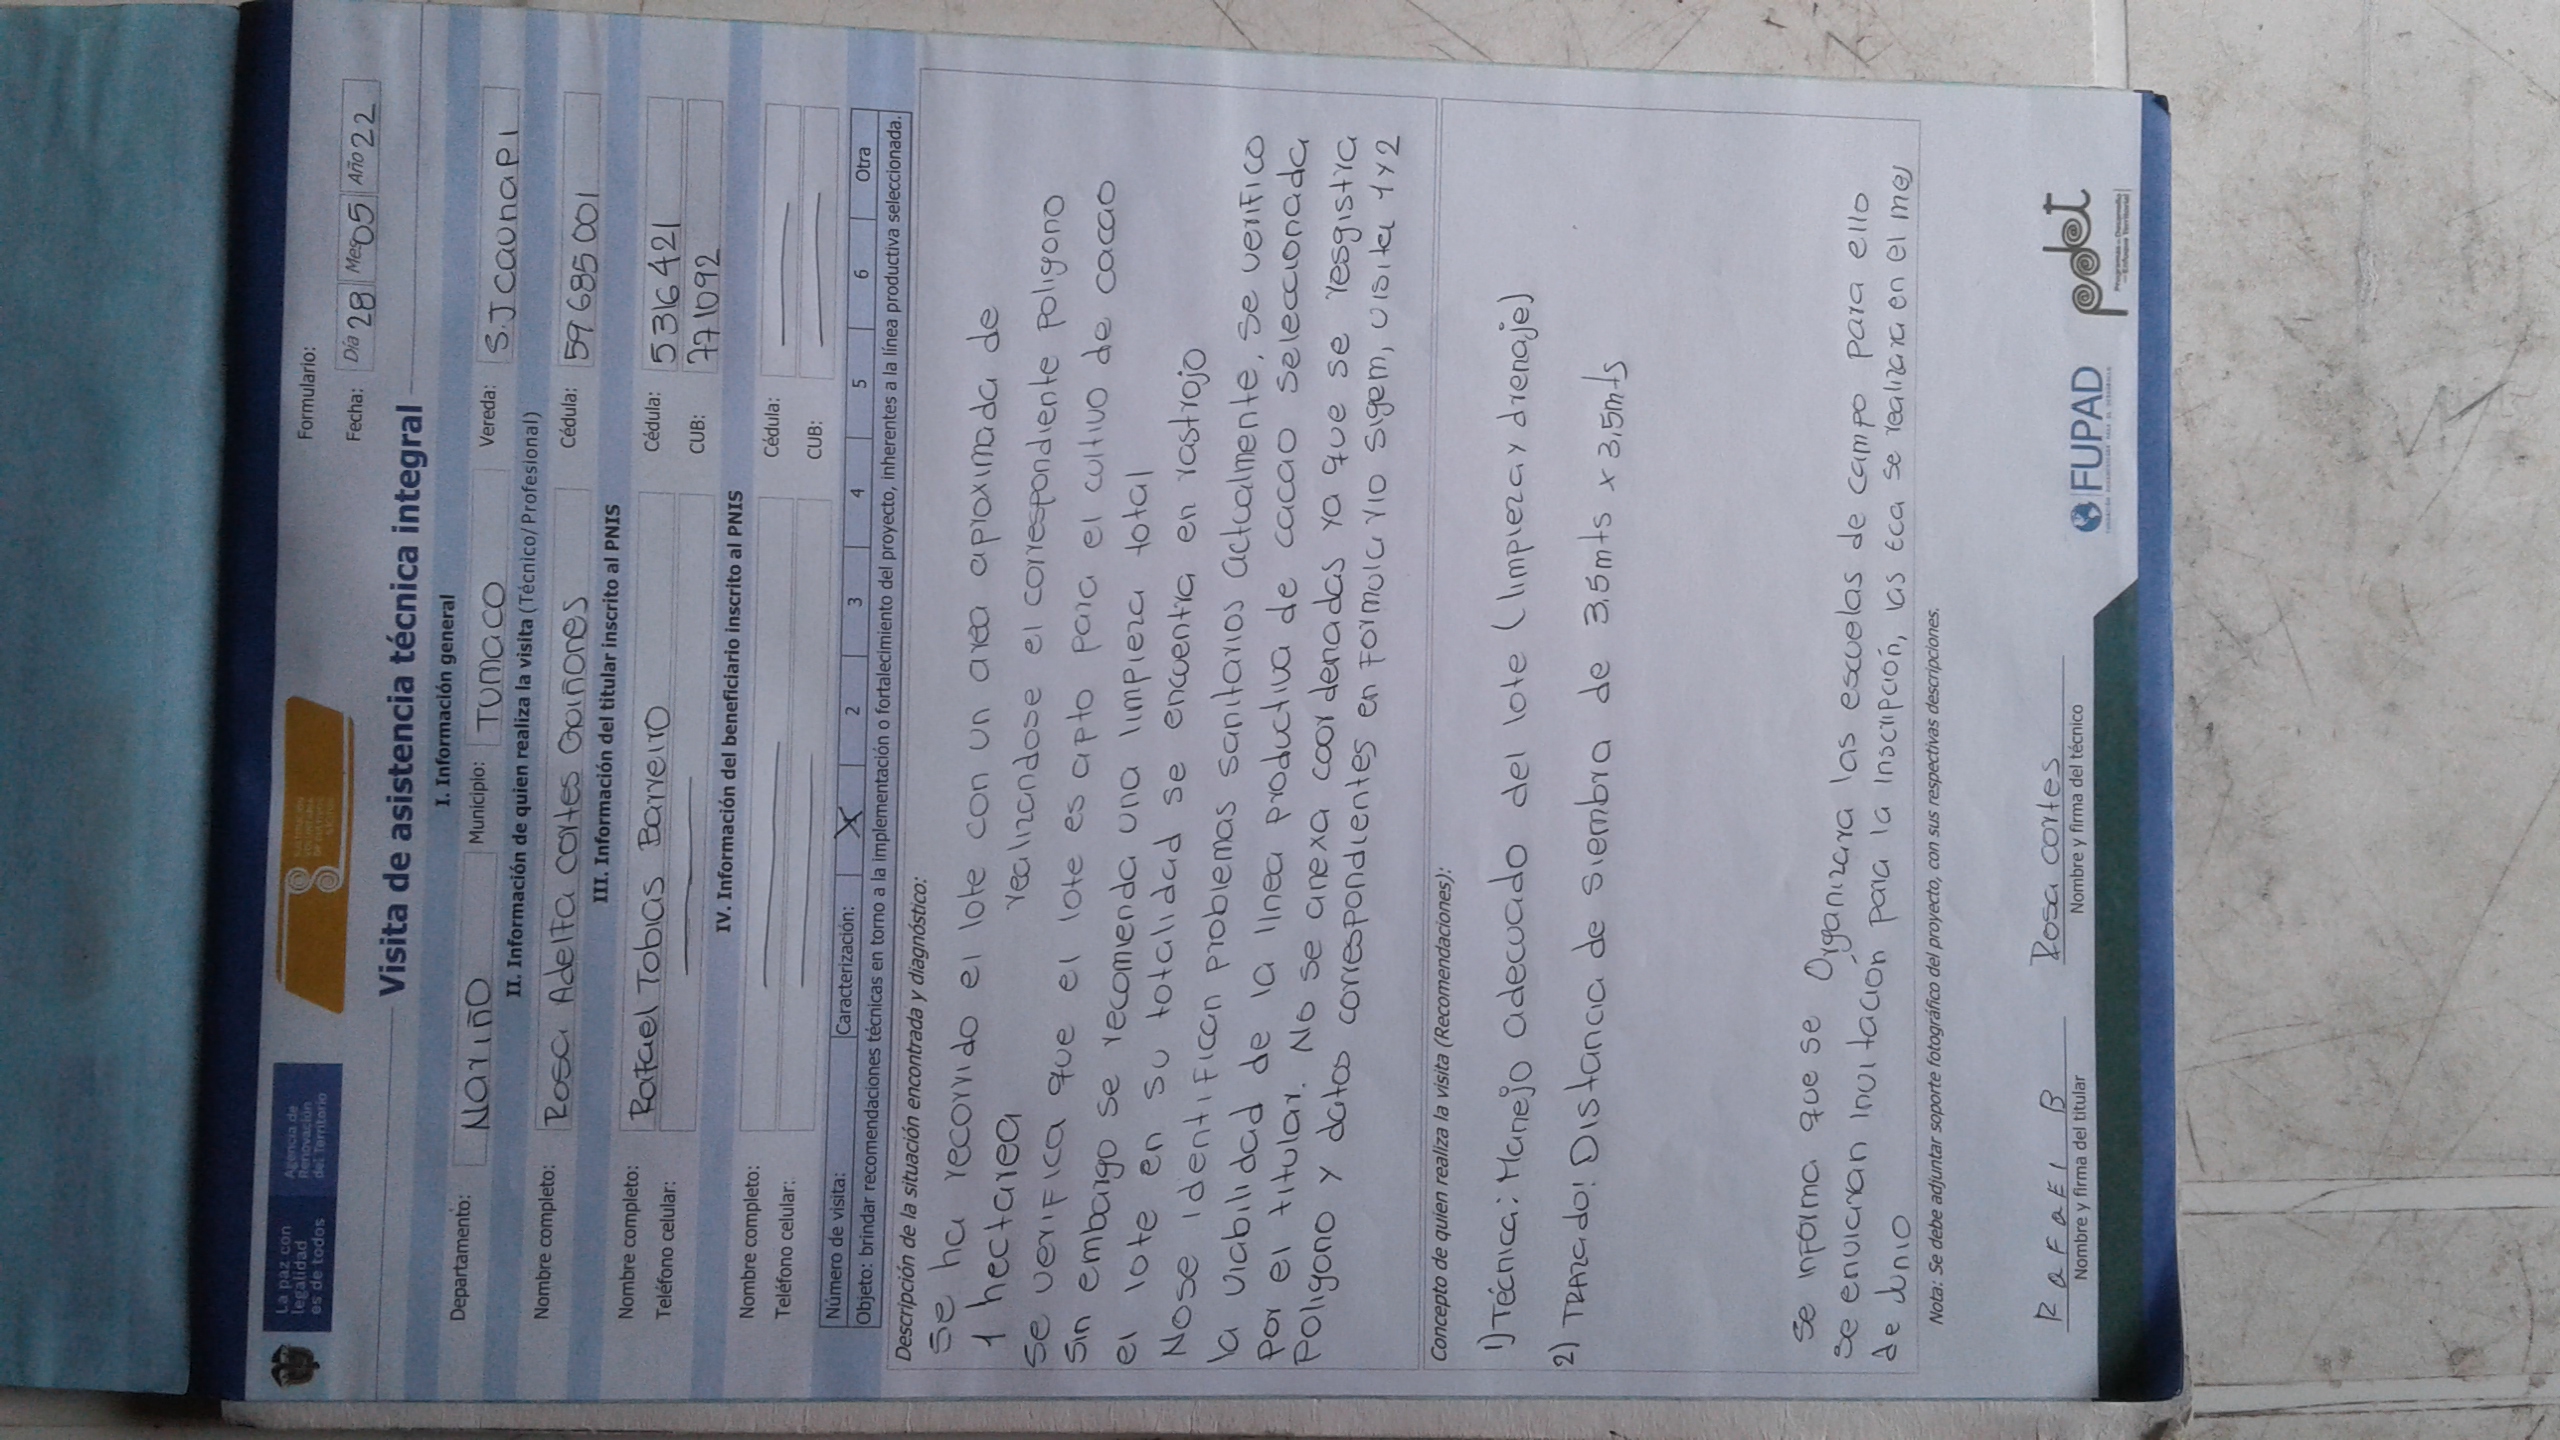 La paz con
legalidad
es de todos
Agencia de
Renovación
del Territorio
Formulario:
Fecha: Día 28 Mes 05 Año 22
Visita de asistencia técnica integral
I. Información general
Departamento: Nariño Municipio: Tumaco Vereda: S.J caunapi
II. Información de quien realiza la visita (Técnico/Profesional)
Nombre completo: Rosa Adelfa cortes Quiñones Cédula: 59685001
III. Información del titular inscrito al PNIS
Nombre completo: Rafael Tobias Barreiro Cédula: 5316421
Teléfono celular: CUB: 771092
IV. Información del beneficiario inscrito al PNIS
Nombre completo: Cédula:
Teléfono celular: CUB:
Número de visita: Caracterización: X 2 3 4 5 6 Otra
Objeto: brindar recomendaciones técnicas en torno a la implementación o fortalecimiento del proyecto, inherentes a la línea productiva seleccionada.
Descripción de la situación encontrada y diagnóstico:
Se ha recorrido el lote con un area aproximada de
1 hectarea realizandose el correspondiente poligono
Se verifica que el lote es apto para el cultivo de cacao
Sin embargo se recomienda una limpieza total
el lote en su totalidad se encuentra en rastrojo
Nose identifican problemas sanitarios actualmente, se verifico
la viabilidad de la linea productiva de cacao seleccionada
Por el titular. No se anexa coordenadas ya que se resgistra
Poligono y datos correspondientes en formulario sygem, visita 1 y 2
Concepto de quien realiza la visita (Recomendaciones):
1) Técnica: Manejo adecuado del lote (limpieza y drenaje)
2) TRAZADO! Distancia de siembra de 3.5mts x 3.5mts
Se informa que se Organizara las escuelas de campo para ello
Se enviaran invitación para la inscripción, las Eca se realizara en el mes
de Junio
Nota: Se debe adjuntar soporte fotográfico del proyecto, con sus respectivas descripciones.
RaFaEl B
Nombre y firma del titular
Rosa cortes
Nombre y firma del técnico
FUPAD
pdet